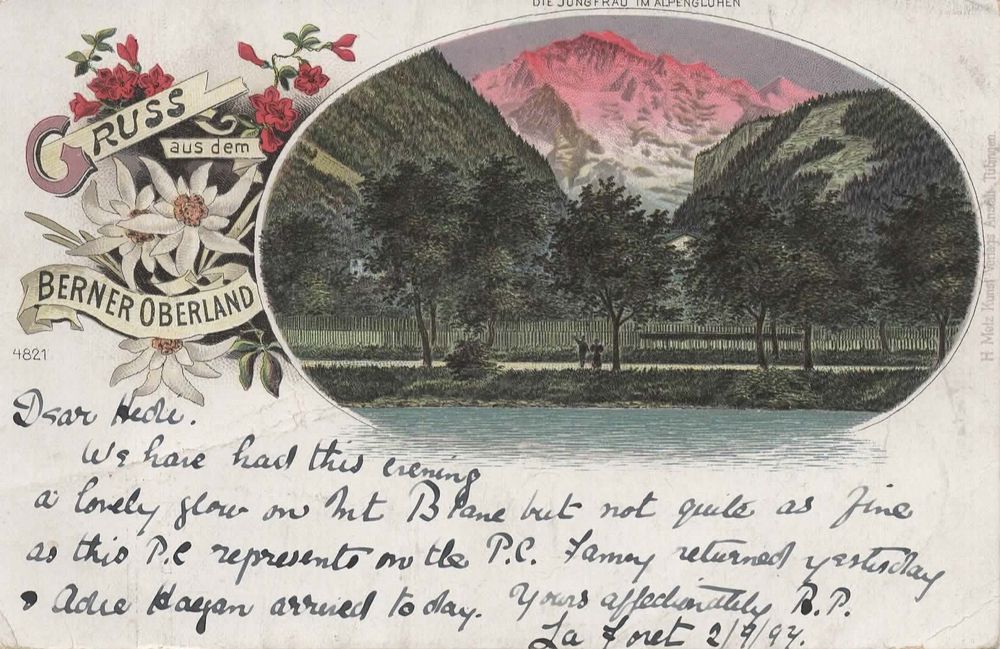 DIE JUNGFRAU IM ALPENGLÜHEN
GRUSS
aus dem
BERNER OBERLAND
4821
H. Metz Kunst Verlags Anstalt, Tübingen.
Dear Hede.
We have had this evening
a lovely glow on Mt Blanc but not quite as fine
as this P.C represents on the P.C. Fanny returned yesterday
& Adie Hagan arrived to day. Yours affectionately R.P.
La Foret 2/9/97.